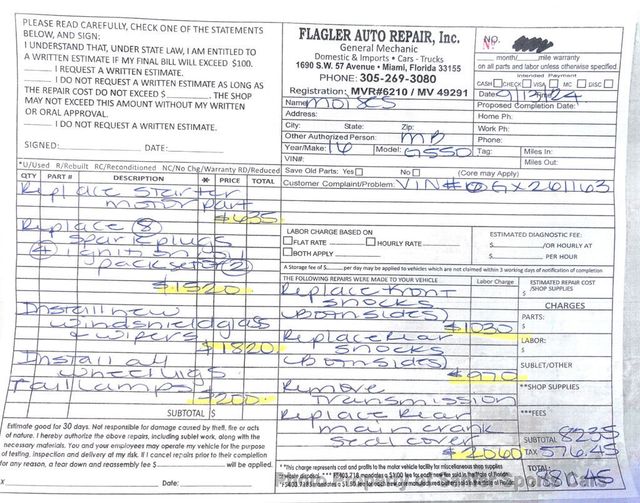 PLEASE READ CAREFULLY, CHECK ONE OF THE STATEMENTS
BELOW, AND SIGN:
I UNDERSTAND THAT, UNDER STATE LAW, I AM ENTITLED TO
A WRITTEN ESTIMATE IF MY FINAL BILL WILL EXCEED $100.
I REQUEST A WRITTEN ESTIMATE.
I DO NOT REQUEST A WRITTEN ESTIMATE AS LONG AS
THE REPAIR COST DO NOT EXCEED $ THE SHOP
MAY NOT EXCEED THIS AMOUNT WITHOUT MY WRITTEN
OR ORAL APPROVAL.
I DO NOT REQUEST A WRITTEN ESTIMATE.
SIGNED: DATE:
FLAGLER AUTO REPAIR, Inc.
General Mechanic
Domestic & Imports • Cars - Trucks
1690 S.W. 57 Avenue • Miami, Florida 33155
PHONE: 305-269-3080
Registration: MVR#6210 / MV 49291
NO.
month/ mile warranty
on all parts and labor unless otherwise specified.
Intended Payment
CASH CHECK VISA MC DISC
Date 9/13/24
Proposed Completion Date:
Name Moises
Address: Home Ph:
City: State: Zip: Work Ph:
Other Authorized Person: MB Phone:
Year/Make: 16 Model: G550 Tag: Miles In:
VIN#: Miles Out:
*U/Used R/Rebuilt RC/Reconditioned NC/No Chg/Warranty RD/Reduced
Save Old Parts: Yes No (Core may Apply)
Customer Complaint/Problem: VIN# GX261163
QTY PART # DESCRIPTION * PRICE TOTAL
Replace starter
motor part
$635
Replace 8
spark plugs
4 ignition coil
pack set of 2
$1520
Install new
windshield glass
& wipers
$1820
Install all
wheel lugs
Tail lamps
$200
SUBTOTAL $
LABOR CHARGE BASED ON
FLAT RATE HOURLY RATE
BOTH APPLY
ESTIMATED DIAGNOSTIC FEE:
$ /OR HOURLY AT
$ PER HOUR
A Storage fee of $ per day may be applied to vehicles which are not claimed within 3 working days of notification of completion
THE FOLLOWING REPAIRS WERE MADE TO YOUR VEHICLE Labor Charge
Replace front
shocks
(both sides)
$1030
Replace Rear
shocks
(both sides)
$970
Remove
Transmission
Replace Rear
main crank
seal cover
$2060
ESTIMATED REPAIR COST
/SHOP SUPPLIES
$
CHARGES
PARTS:
$
LABOR:
$
SUBLET/OTHER
**SHOP SUPPLIES
***FEES
SUBTOTAL 8235
TAX 576.45
TOTAL:
Estimate good for 30 days. Not responsible for damage caused by theft, fire or acts
of nature. I hereby authorize the above repairs, including sublet work, along with the
necessary materials. You and your employees may operate my vehicle for the purpose
of testing, inspection and delivery at my risk. If I cancel repairs prior to their completion
for any reason, a tear down and reassembly fee $ will be applied.
X Date:
*This charge represents cost and profits to the motor vehicle for miscellaneous shop supplies